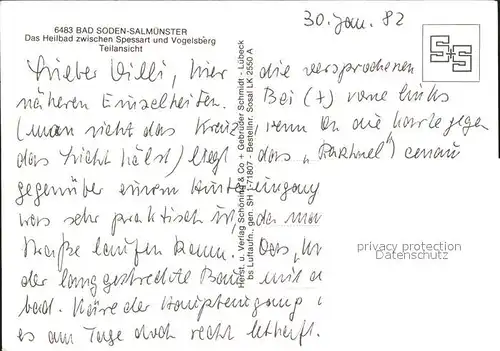 30. Jan. 82
6483 BAD SODEN-SALMÜNSTER
Das Heilbad zwischen Spessart und Vogelsberg
Teilansicht
S+S
Lieber Willi, hier die versprochenen
näheren Einzelheiten. Bei (+) vorne links
(man sieht das Kreuz, wenn du die Karte gegen
das Licht hält) liegt das „ " genau
gegenüber einem Hintereingang
was sehr praktisch ist, da man
Straße laufen kann. Das
der langgestreckte Bau mit
bad. Nähe der Haupteingang
es am Tage doch recht lebhaft.
Herst. u. Verlag Schöning & Co + Gebrüder Schmidt - Lübeck
bs Luftaufn., gen. SH 1-71807 - Bestellnr. Sosal LK 2550 A
privacy protection
Datenschutz